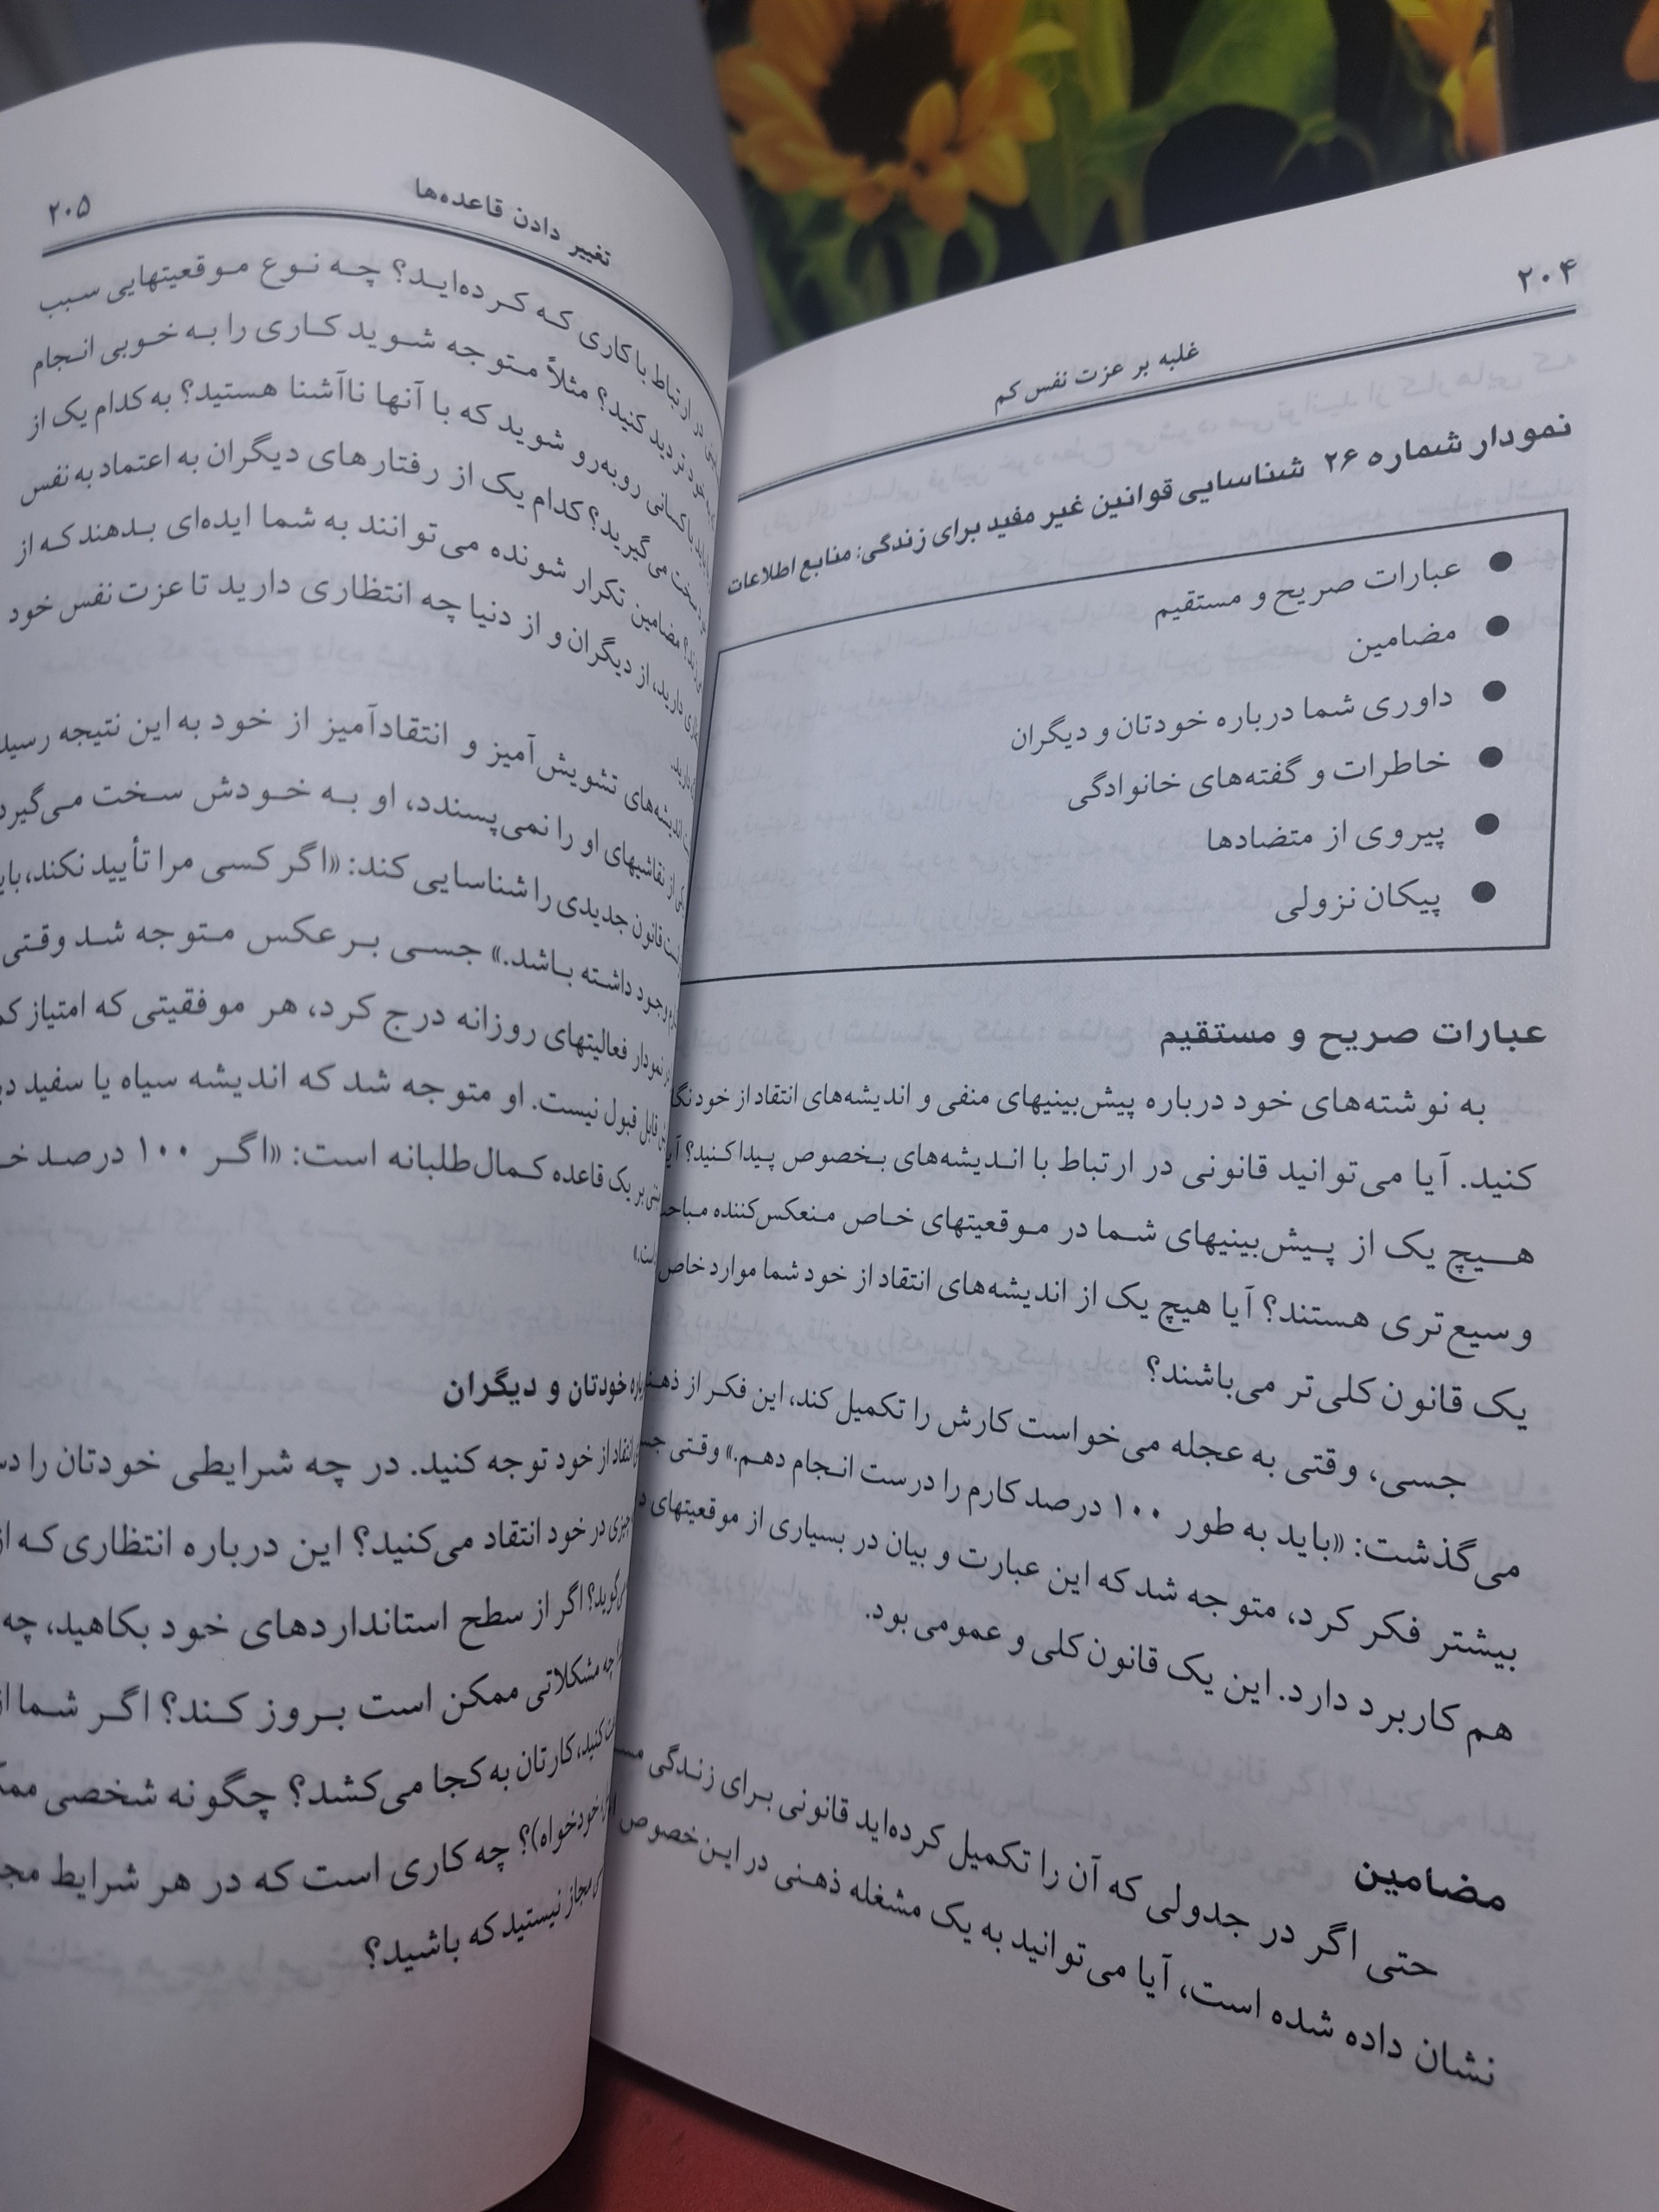 ۲۰۴
غلبه بر عزت نفس کم
نمودار شماره ۲۶ شناسایی قوانین غیر مفید برای زندگی: منابع اطلاعات
● عبارات صریح و مستقیم
● مضامین
● داوری شما درباره خودتان و دیگران
● خاطرات و گفته‌های خانوادگی
● پیروی از متضادها
● پیکان نزولی
عبارات صریح و مستقیم
به نوشته‌های خود درباره پیش‌بینیهای منفی و اندیشه‌های انتقاد از خود
کنید. آیا می‌توانید قانونی در ارتباط با اندیشه‌های بخصوص پیدا کنید؟
هیچ یک از پیش‌بینیهای شما در موقعیتهای خاص منعکس‌کننده
وسیع‌تری هستند؟ آیا هیچ یک از اندیشه‌های انتقاد از خود شما موارد خاص
یک قانون کلی‌تر می‌باشند؟
جسی، وقتی به عجله می‌خواست کارش را تکمیل کند، این فکر از
می‌گذشت: «باید به طور ۱۰۰ درصد کارم را درست انجام دهم.» وقتی
بیشتر فکر کرد، متوجه شد که این عبارت و بیان در بسیاری از موقعیتهای
هم کاربرد دارد. این یک قانون کلی و عمومی بود.
مضامین
حتی اگر در جدولی که آن را تکمیل کرده‌اید قانونی برای زندگی
نشان داده شده است، آیا می‌توانید به یک مشغله ذهنی در این خصوص
تغییر دادن قاعده‌ها
۲۰۵
در ارتباط با کاری که کرده‌اید؟ چه نوع موقعیتهایی سبب
خود تردید کنید؟ مثلاً متوجه شوید کاری را به خوبی انجام
با کسانی روبه‌رو شوید که با آنها ناآشنا هستید؟ به کدام یک از
سخت می‌گیرید؟ کدام یک از رفتارهای دیگران به اعتماد به نفس
مضامین تکرار شونده می‌توانند به شما ایده‌ای بدهند که از
دارید، از دیگران و از دنیا چه انتظاری دارید تا عزت نفس خود
اندیشه‌های تشویش‌آمیز و انتقادآمیز از خود به این نتیجه
از نقاشیهای او را نمی‌پسندد، او به خودش سخت می‌گیرد
قانون جدیدی را شناسایی کند: «اگر کسی مرا تأیید نکند،
وجود داشته باشد.» جسی برعکس متوجه شد وقتی
نمودار فعالیتهای روزانه درج کرد، هر موفقیتی که امتیاز
قابل قبول نیست. او متوجه شد که اندیشه سیاه یا سفید
بر یک قاعده کمال‌طلبانه است: «اگر ۱۰۰ درصد
خودتان و دیگران
انتقاد از خود توجه کنید. در چه شرایطی خودتان را
چیزی در خود انتقاد می‌کنید؟ این درباره انتظاری که
می‌گوید؟ اگر از سطح استانداردهای خود بکاهید، چه
چه مشکلاتی ممکن است بروز کند؟ اگر شما
کنید، کارتان به کجا می‌کشد؟ چگونه شخصی
خودخواه)؟ چه کاری است که در هر شرایط
مجاز نیستید که باشید؟